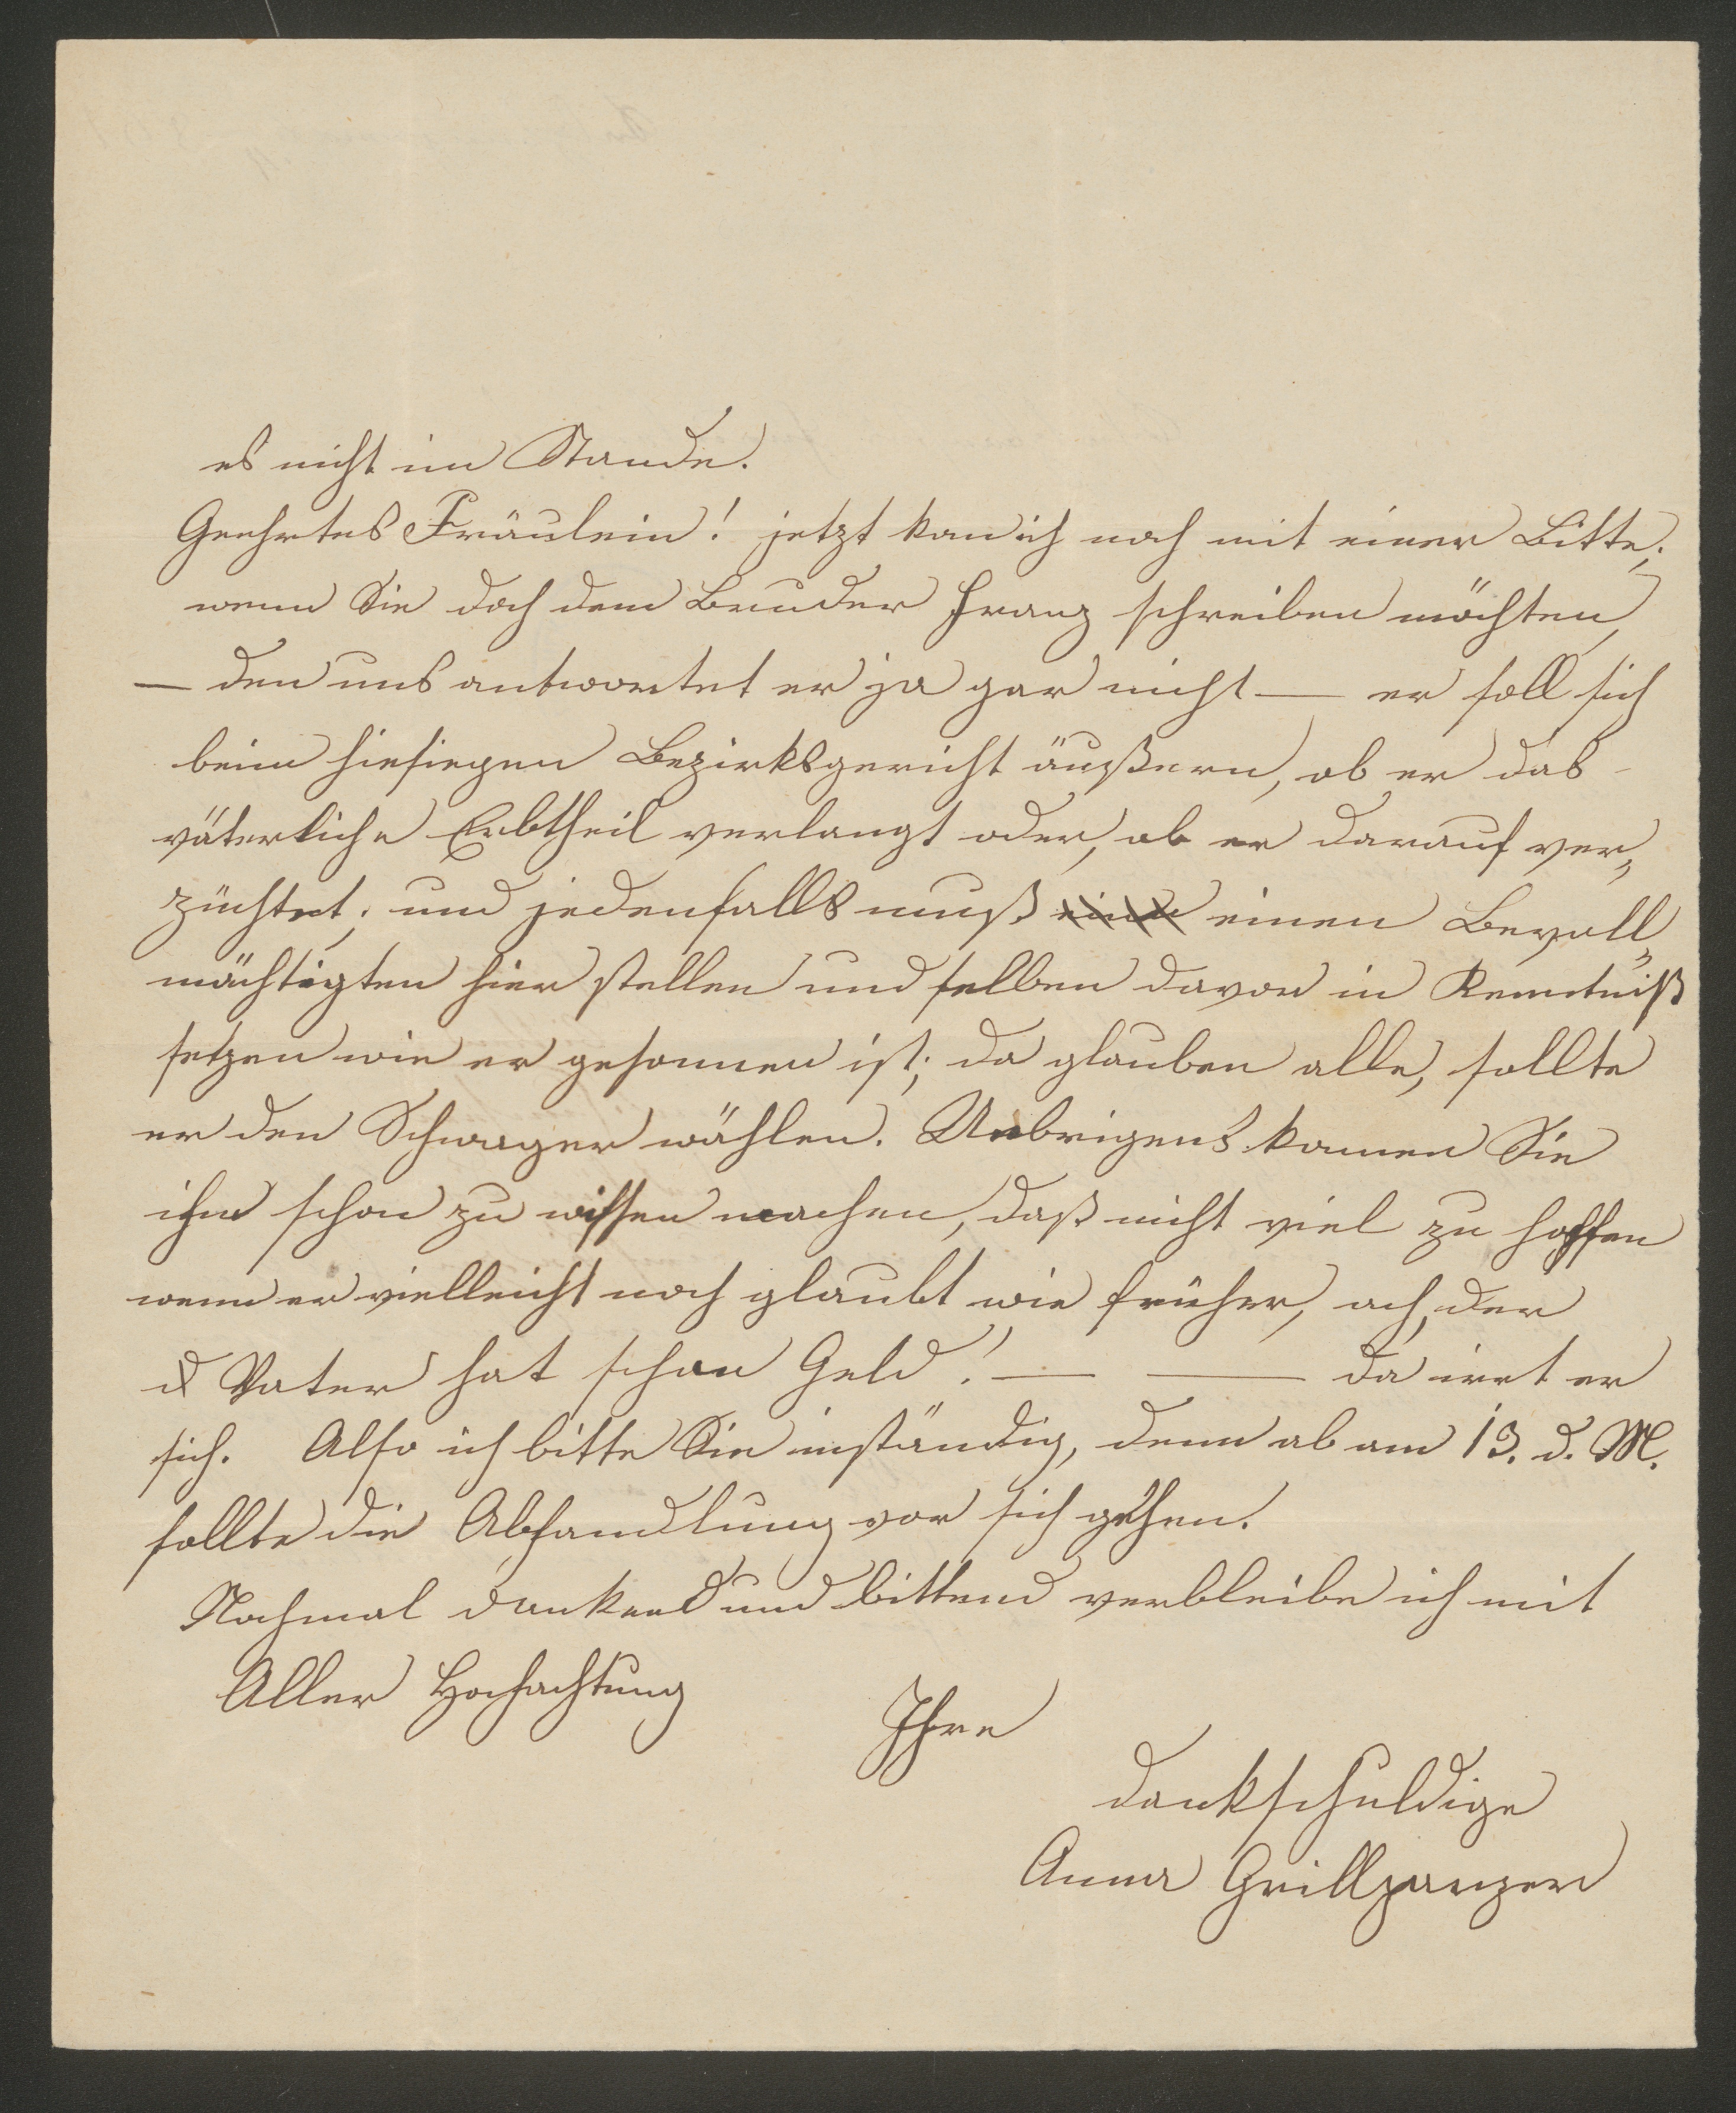 es nicht im Stande.
Geehrtes Fräulein! jetzt kom ich noch mit einer Bitte,
wenn Sie doch dem Bruder Franz schreiben möchten,
— den uns antwortet er ja gar nicht — er soll sich
beim hiesiegen Bezirksgericht äußern, ob er das
väterliche Erbtheil verlangt oder, ob er darauf ver„
züchtet; und jedenfalls muß einen Bevoll„
mächtigten hier stellen und selben davon in Kenntniß
setzen wie er gesonnen ist; da glauben alle, sollte
er den Schwager wählen. Uebrigens kannen Sie
ihm schon zu wissen machen, daß nicht viel zu hoffen
wenn er vielleicht noch glaubt wie früher, ach, der
d Vater hat schon Geld! — — da irrt er
sich. Also ich bitte Sie inständig, denn ab am 13. d. M.
sollte die Abhandlung vor sich gehen.
Nochmal dankend und bittend verbleibe ich mit
Aller Hochachtung
Ihre
dankschuldige
Anna Grillparzer